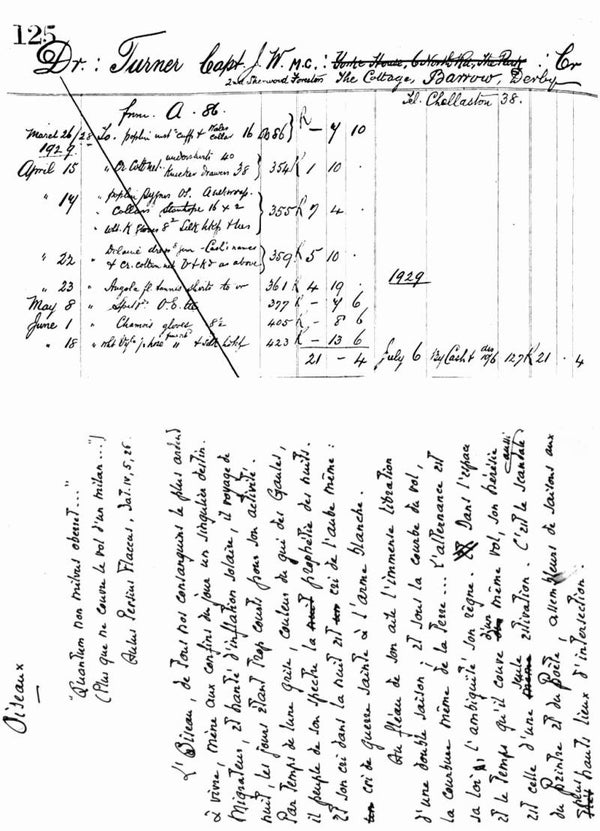 125
Dr.: Turner Capt. J. W. M.C.: Yorke House, 6 North Rd, The Park : Cr
2nd Sherwood Foresters The Cottage, Barrow, Derby
Tel. Chellaston 38.
from A. 86.
March 26/28 To. poplin cuffs & collar 16 B86 K — 7 10
1929
April 15 " Cr. Cotton undershirts 40
Knicker Drawers 38 354 K 1 10 .
" 17 " poplin
" Collars 16 x 2 355 K 7 4 .
" gloves 8½ silk hkf & ties
" 22 Delaine - Cash's names
& Cr. cotton as above 359 K 5 10 .
" 23 " Angola fl tennis shirts to or 361 K 4 19 .
1929
May 8 " O.E. tie 377 K — 7 6
June 1 " Chamois gloves 8½ 405 K — 8 6
" 18 " hose & silk hkf 423 K — 13 6
21 — 4 July 6 By Cash & dis 10/6 127 K 21 . 4
Oiseaux
"Quantum non milvus oberret..."
(Plus que ne couvre le vol d'un milan...)
Aulus Persius Flaccus, Sat. IV, 5, 26.
L'Oiseau, de tous nos consanguins le plus ardent
à vivre, mène aux confins du jour un singulier destin.
Migrateur, et hanté d'inflation solaire, il voyage de
nuit, les jours étant trop courts pour son activité.
Par temps de lune grise, couleur du gui des Gaules,
il peuple de son spectre la nuit prophétie des nuits.
Et son cri dans la nuit est son cri de l'aube même :
ton cri de guerre sainte à l'arme blanche.
Au fléau de son aile l'immense libration
d'une double saison ; et sous la courbe du vol,
la courbure même de la terre... L'alternance est
sa loi, l'ambiguïté son règne. Dans l'espace
et le temps qu'il couve d'un même vol, son hérésie
est celle d'une seule estivation. C'est le scandale aussi
du peintre et du poète, assembleurs de saisons aux
plus hauts lieux d'intersection.